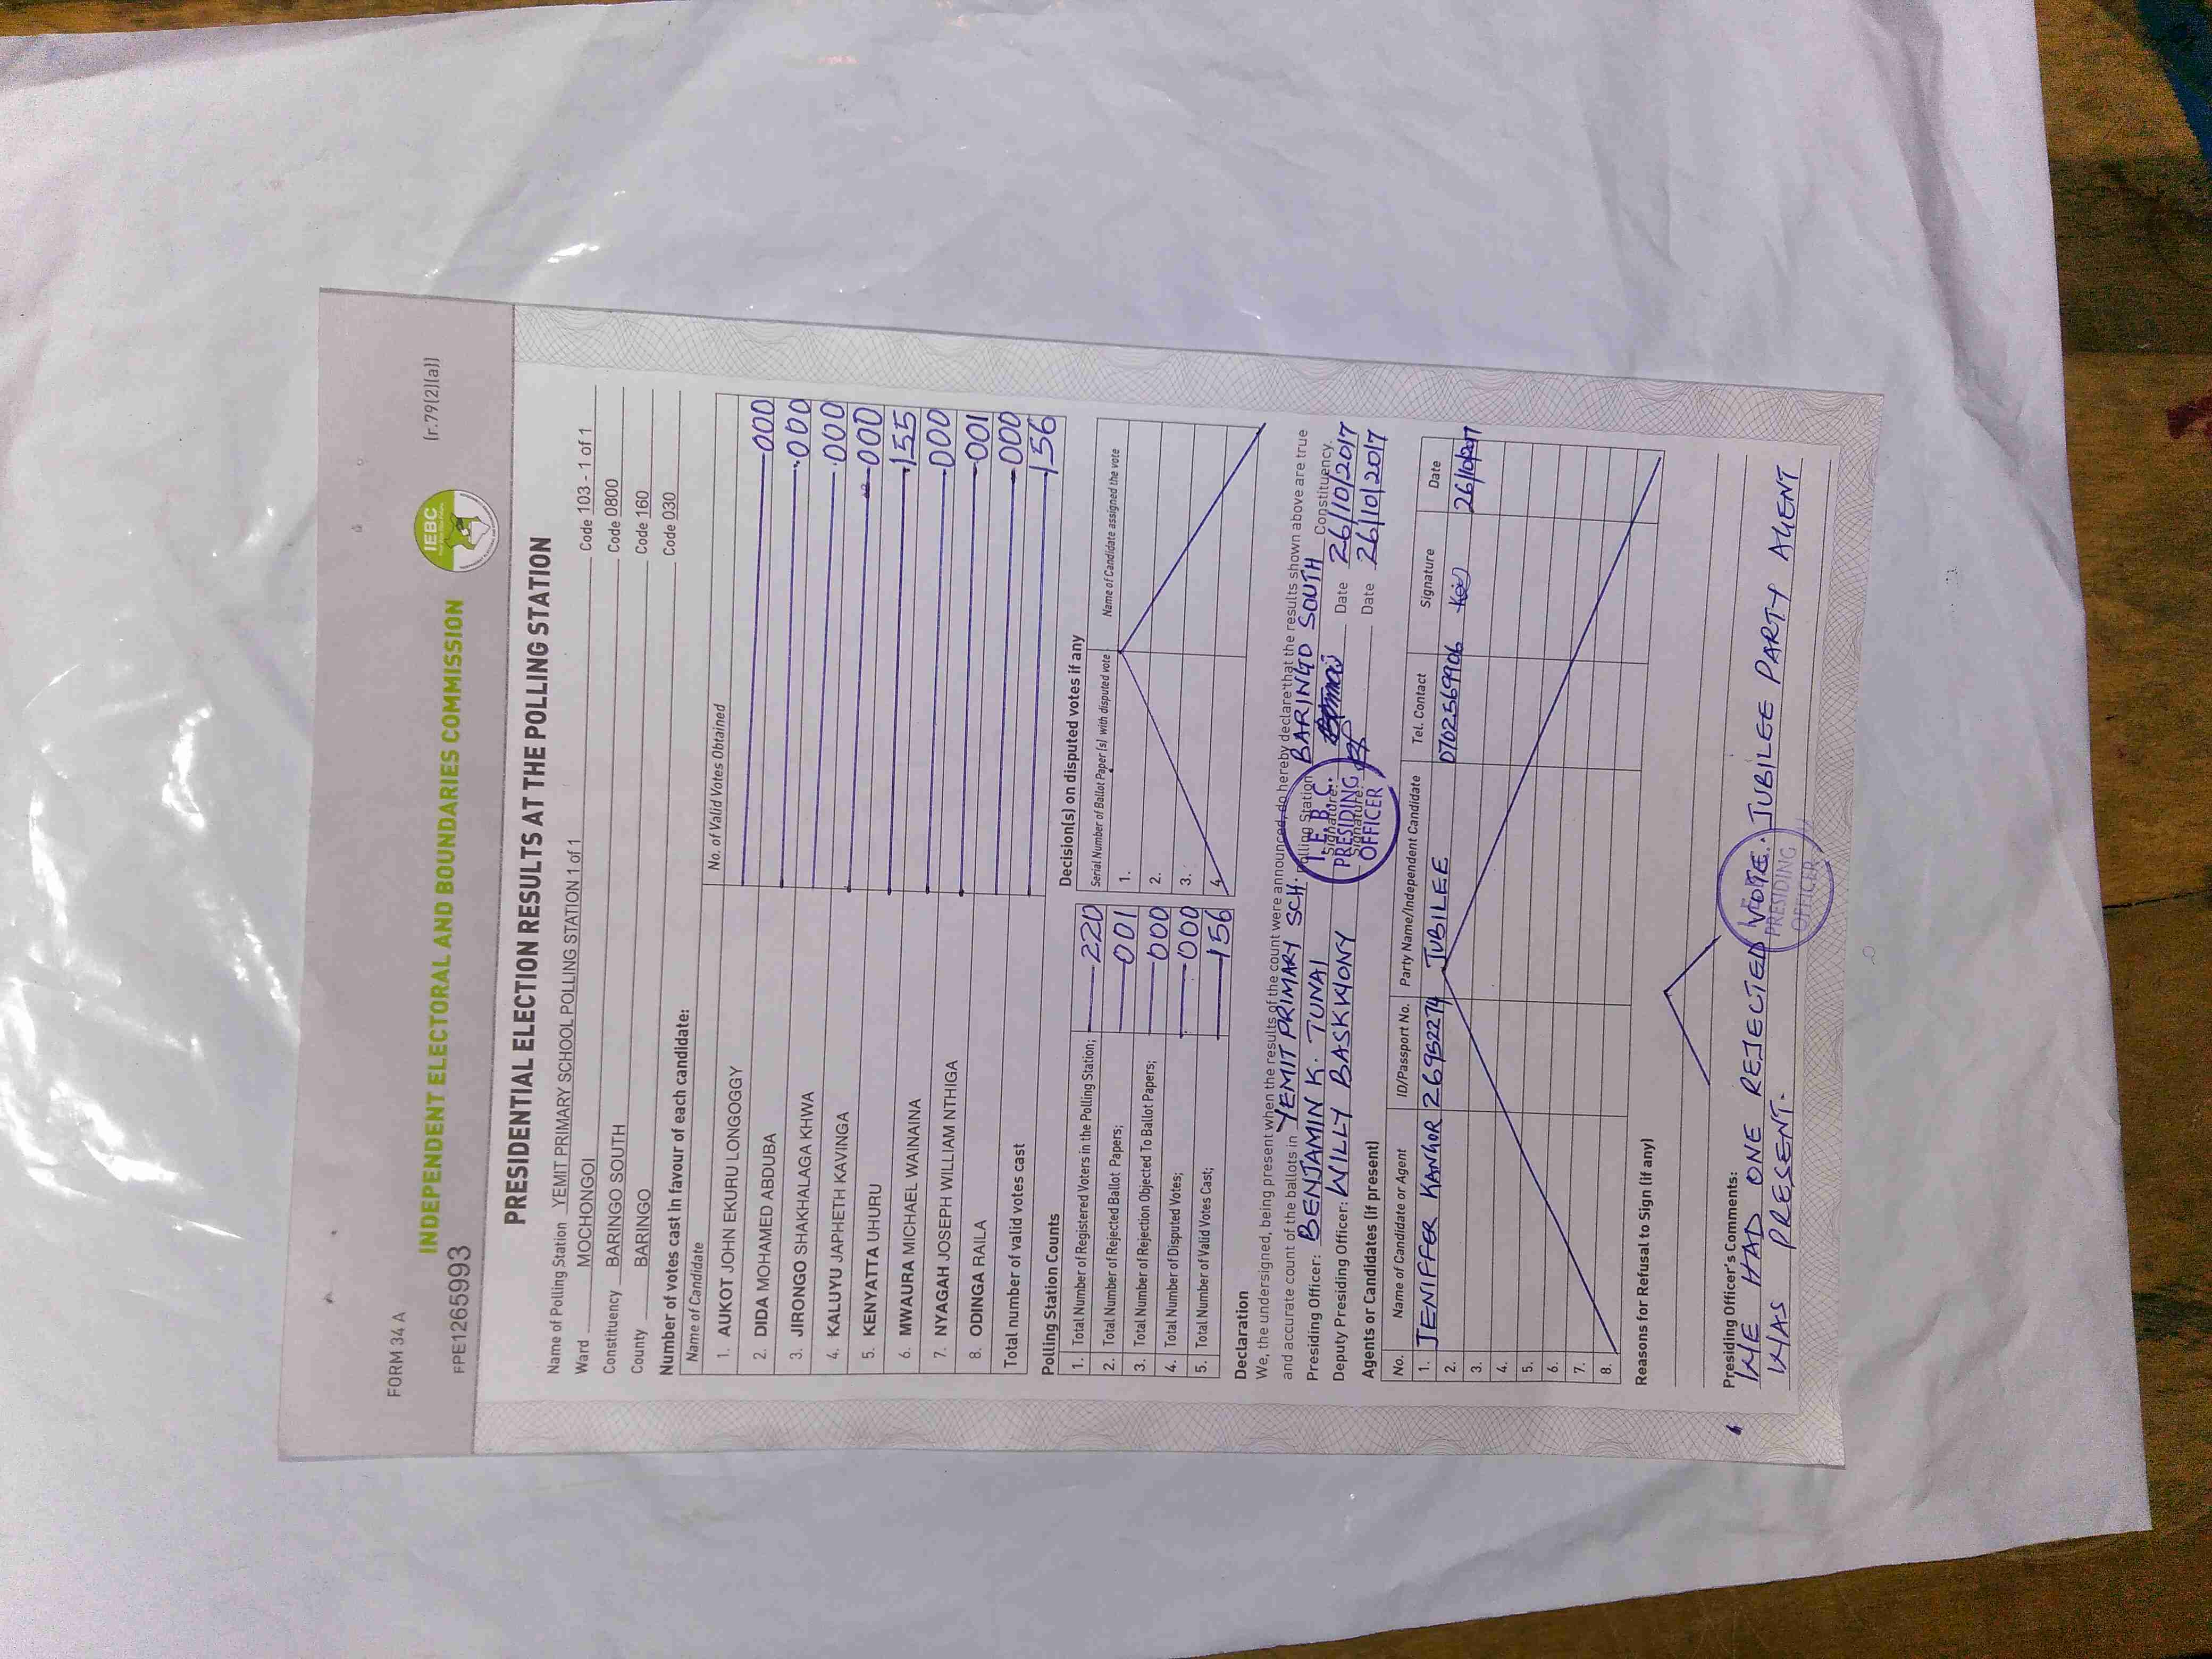 FORM 34 A
(r.79(2)(a))
INDEPENDENT ELECTORAL AND BOUNDARIES COMMISSION
IEBC
FPE1265993
PRESIDENTIAL ELECTION RESULTS AT THE POLLING STATION
Name of Polling Station YEMIT PRIMARY SCHOOL POLLING STATION 1 of 1 Code 103 - 1 of 1
Ward MOCHONGOI Code 0800
Constituency BARINGO SOUTH Code 160
County BARINGO Code 030
Number of votes cast in favour of each candidate:
Name of Candidate No. of Valid Votes Obtained
1. AUKOT JOHN EKURU LONGOGGY 000
2. DIDA MOHAMED ABDUBA 000
3. JIRONGO SHAKHALAGA KHWA 000
4. KALUYU JAPHETH KAVINGA 000
5. KENYATTA UHURU 155
6. MWAURA MICHAEL WAINAINA 000
7. NYAGAH JOSEPH WILLIAM NTHIGA 001
8. ODINGA RAILA 000
Total number of valid votes cast 156
Polling Station Counts
1. Total Number of Registered Voters in the Polling Station; 220
2. Total Number of Rejected Ballot Papers; 001
3. Total Number of Rejection Objected To Ballot Papers; 000
4. Total Number of Disputed Votes; 000
5. Total Number of Valid Votes Cast; 156
Decision(s) on disputed votes if any
Serial Number of Ballot Paper (s) with disputed vote Name of Candidate assigned the vote
1.
2.
3.
4.
Declaration
We, the undersigned, being present when the results of the count were announced, do hereby declare that the results shown above are true
and accurate count of the ballots in YEMIT PRIMARY SCH. Polling Station BARINGO SOUTH Constituency.
Presiding Officer: BENJAMIN K. TUNAI Signature: Date 26/10/2017
Deputy Presiding Officer: WILLY BASKWONY Signature: Date 26/10/2017
I.E.B.C.
PRESIDING
OFFICER
Agents or Candidates (if present)
No. Name of Candidate or Agent ID/Passport No. Party Name/Independent Candidate Tel. Contact Signature Date
1. JENIFFER KANGOR 26952274 JUBILEE 0702569906 26/10/2017
2.
3.
4.
5.
6.
7.
8.
Reasons for Refusal to Sign (if any)
Presiding Officer's Comments:
WE HAD ONE REJECTED VOTE. JUBILEE PARTY AGENT
WAS PRESENT.
PRESIDING
OFFICER